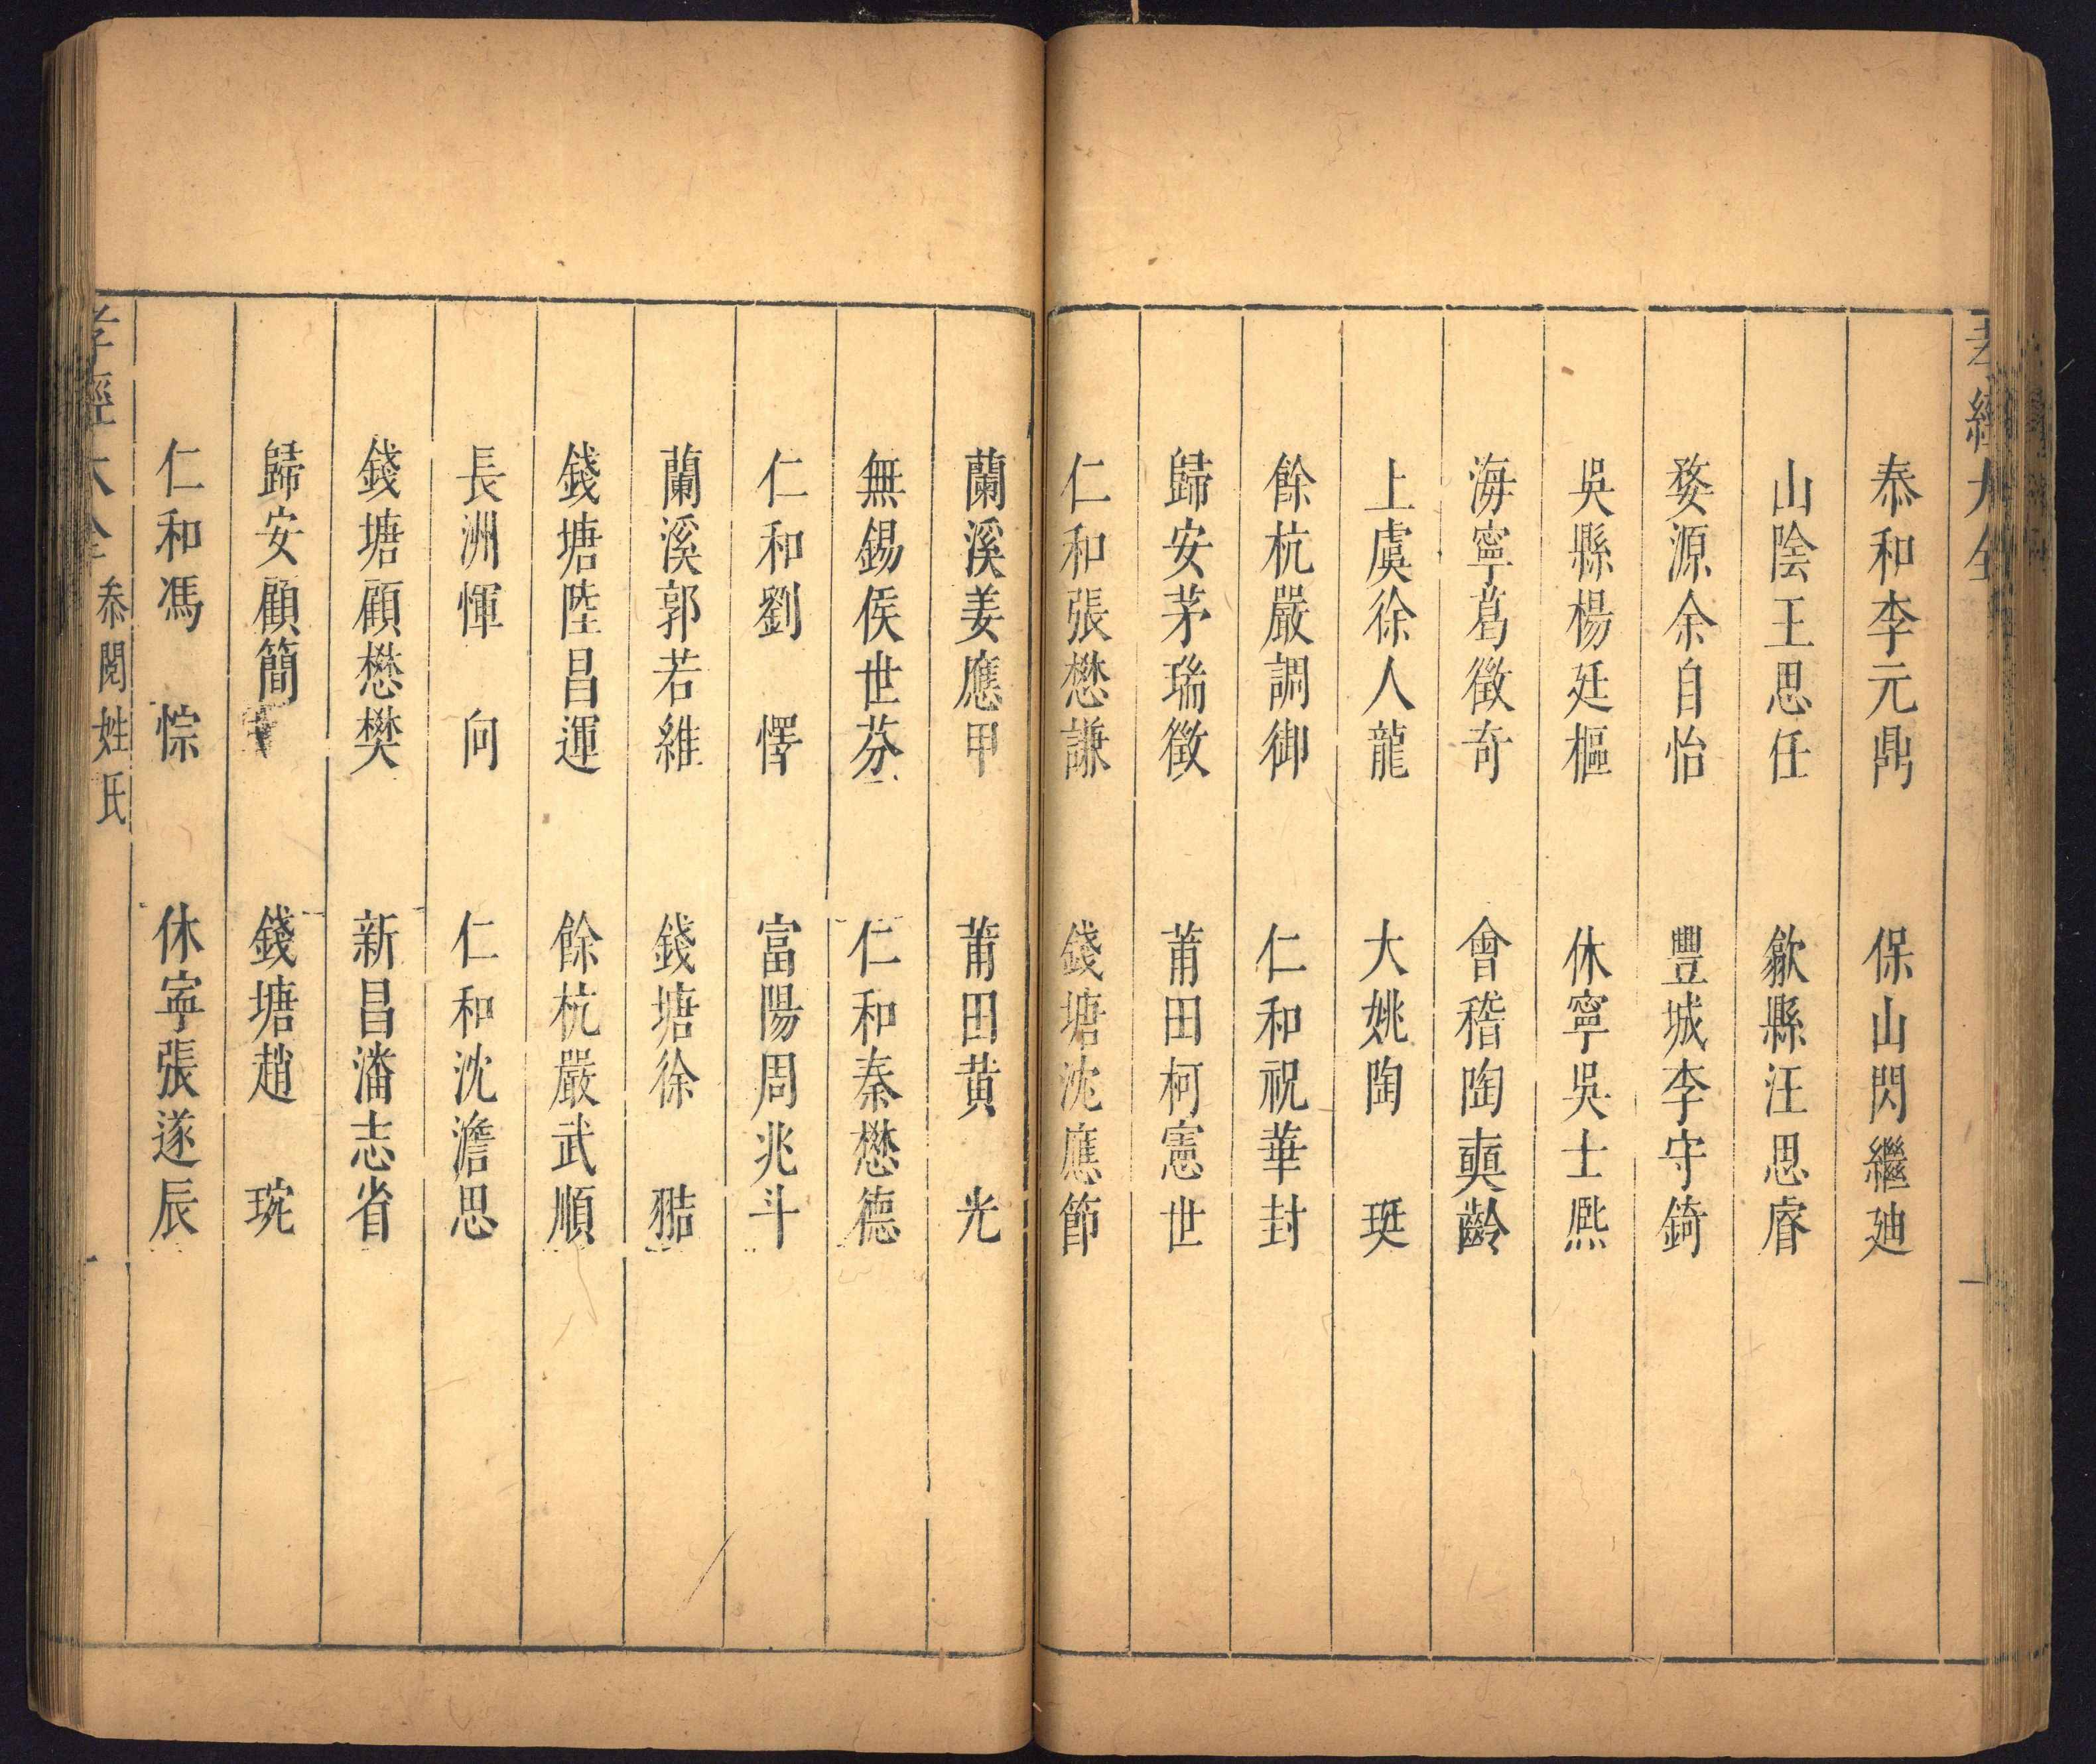 孝經大全
泰和李元鼎 保山閃繼迪
山陰王思任 歙縣汪思睿
婺源余自怡 豐城李守錡
吳縣楊廷樞 休寧吳士熈
海寧葛徵奇 會稽陶奭齡
上虞徐人龍 大姚陶 珽
餘杭嚴調御 仁和祝華封
歸安茅瑞徵 莆田柯憲世
仁和張懋謙 錢塘沈應節
蘭溪姜應甲 莆田黄 光
無錫侯世芬 仁和秦懋德
仁和劉 㦗 富陽周兆斗
蘭溪郭若維 錢塘徐
錢塘陸昌運 餘杭嚴武順
長洲惲 向 仁和沈澹思
錢塘顧懋樊 新昌潘志省
歸安顧簡 錢塘趙 琬
仁和馮 悰 休寧張遂辰
孝經大全 叅閱姓氏 一